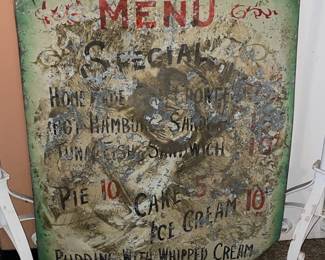 MENU
Special
Home
Hot Hamburg
Tuna Fish Sandwich
Pie 10 Cake 5
Ice Cream 10
Pudding with Whipped Cream